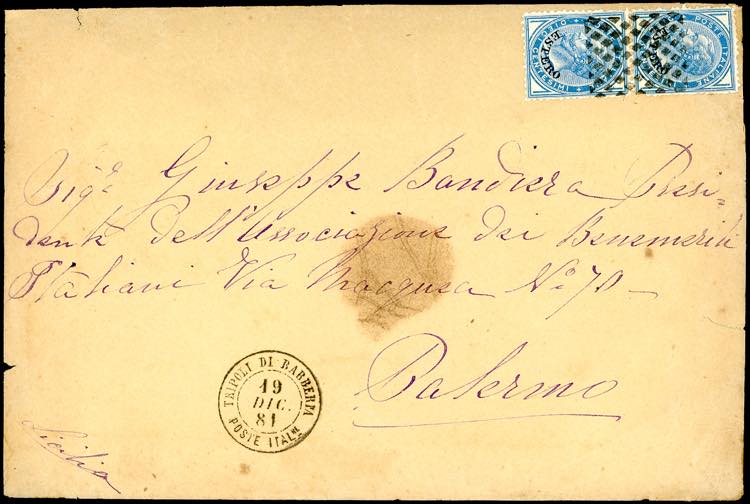 ESTERO
ESTERO
POSTE ITALIANE
Sig.r Giuseppe Bandiera Presi-
dente dell'Associazione dei Benemeriti
Italiani Via Macqueda No 70 -
Palermo
Sicilia
TRIPOLI DI BARBERIA
19
DIC.
81
POSTE ITALNE